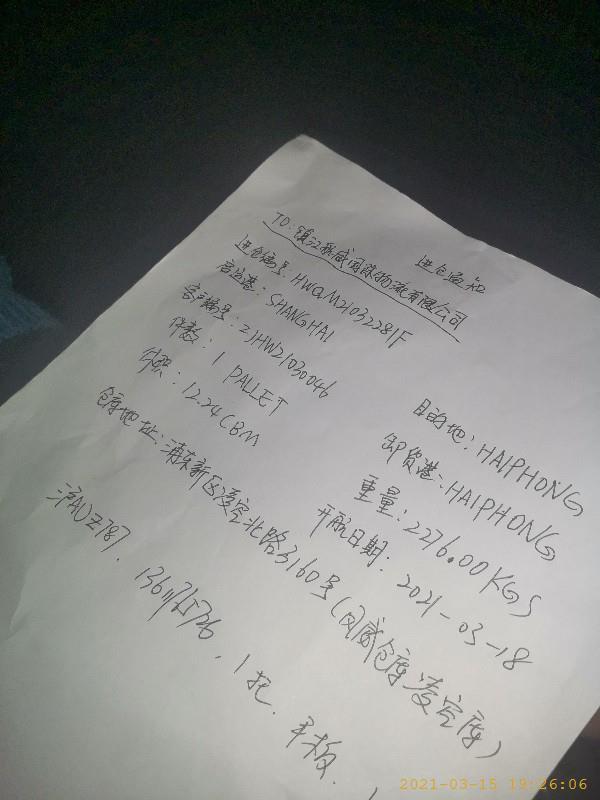 进仓通知
TO: 镇江
国际物流有限公司
进仓编号: HWQLM21032281F
启运港: SHANGHAI
目的地: HAIPHONG
客户编号: ZJHW21030046
卸货港: HAIPHONG
件数: 1 PALLET
重量: 2276.00 KGS
体积: 12.24 CBM
开航日期: 2021-03-18
仓库地址: 浦东新区凌空北路3160号(
威仓库凌空库)
1托. 平板.
2021-03-15 19:26:06